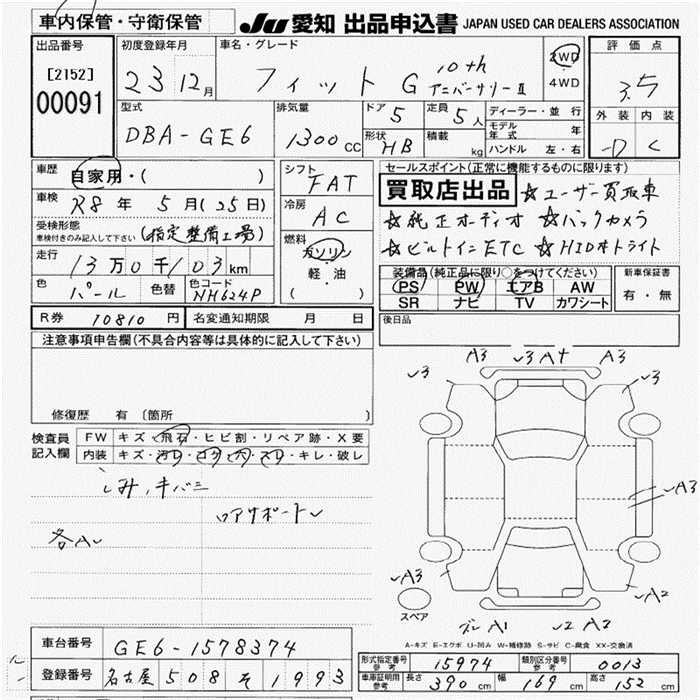 車内保管・守衛保管
JU 愛知 出品申込書 JAPAN USED CAR DEALERS ASSOCIATION
出品番号
[2152]
00091
初度登録年月
23 12月
車名・グレード
フィット G 10th アニバーサリーⅡ
2WD
4WD
評価点
3.5
外装 内装
D C
型式
DBA-GE6
排気量
1300 CC
ドア 5
定員 5人
形状 HB
積載 kg
ディーラー・並行
モデル年式 年
ハンドル 左・右
車歴 自家用・( )
車検 R8年 5月(25日)
受検形態 (指定整備工場)
車検付きのみ記入して下さい
走行 13万0千103km
色 パール 色替 色コード NH624P
シフト FAT
冷房 AC
燃料
ガソリン
軽・油
( )
セールスポイント(正常に機能するものに限ります)
買取店出品 ☆ユーザー買取車
☆純正オーディオ ☆バックカメラ
☆ビルトインETC ☆HIDオートライト
装備品(純正品に限り○をつけてください)
PS PW エアB AW
SR ナビ TV カワシート
新車保証書
有・無
R券 10810円 名変通知期限 月 日
後日品
注意事項申告欄(不具合内容等は具体的に記入して下さい)
修復歴 有 (箇所 )
検査員記入欄
FW キズ・飛石・ヒビ割・リペア跡・X要
内装 キズ・汚レ・コゲ・穴・スレ・キレ・破レ
シミ、キバミ
ロアサポート
各A
A3 3 A4 A3
3 3
A3
A3
A2
スペア
A1 2 A2
A-キズ E-エクボ U-凹み W-補修跡 S-サビ C-腐食 XX-交換済
車台番号 GE6-1578374
登録番号 名古屋 508 そ 1993
形式指定番号 参考 15974 類別区分番号 参考 0013
車庫証明用 参考 長さ 390 cm 幅 169 cm 高さ 152 cm